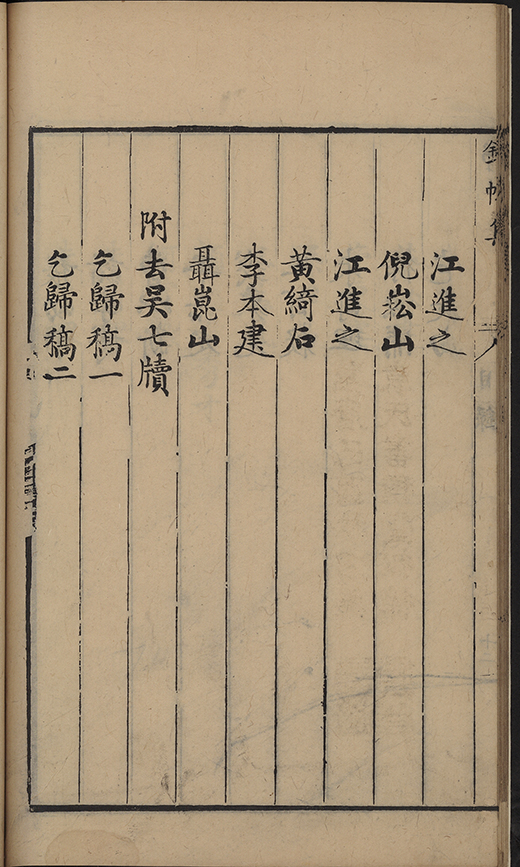 江進之
倪崧山
江進之
黃綺石
李本建
聶崑山
附去吳七牘
乞歸稿一
乞歸稿二